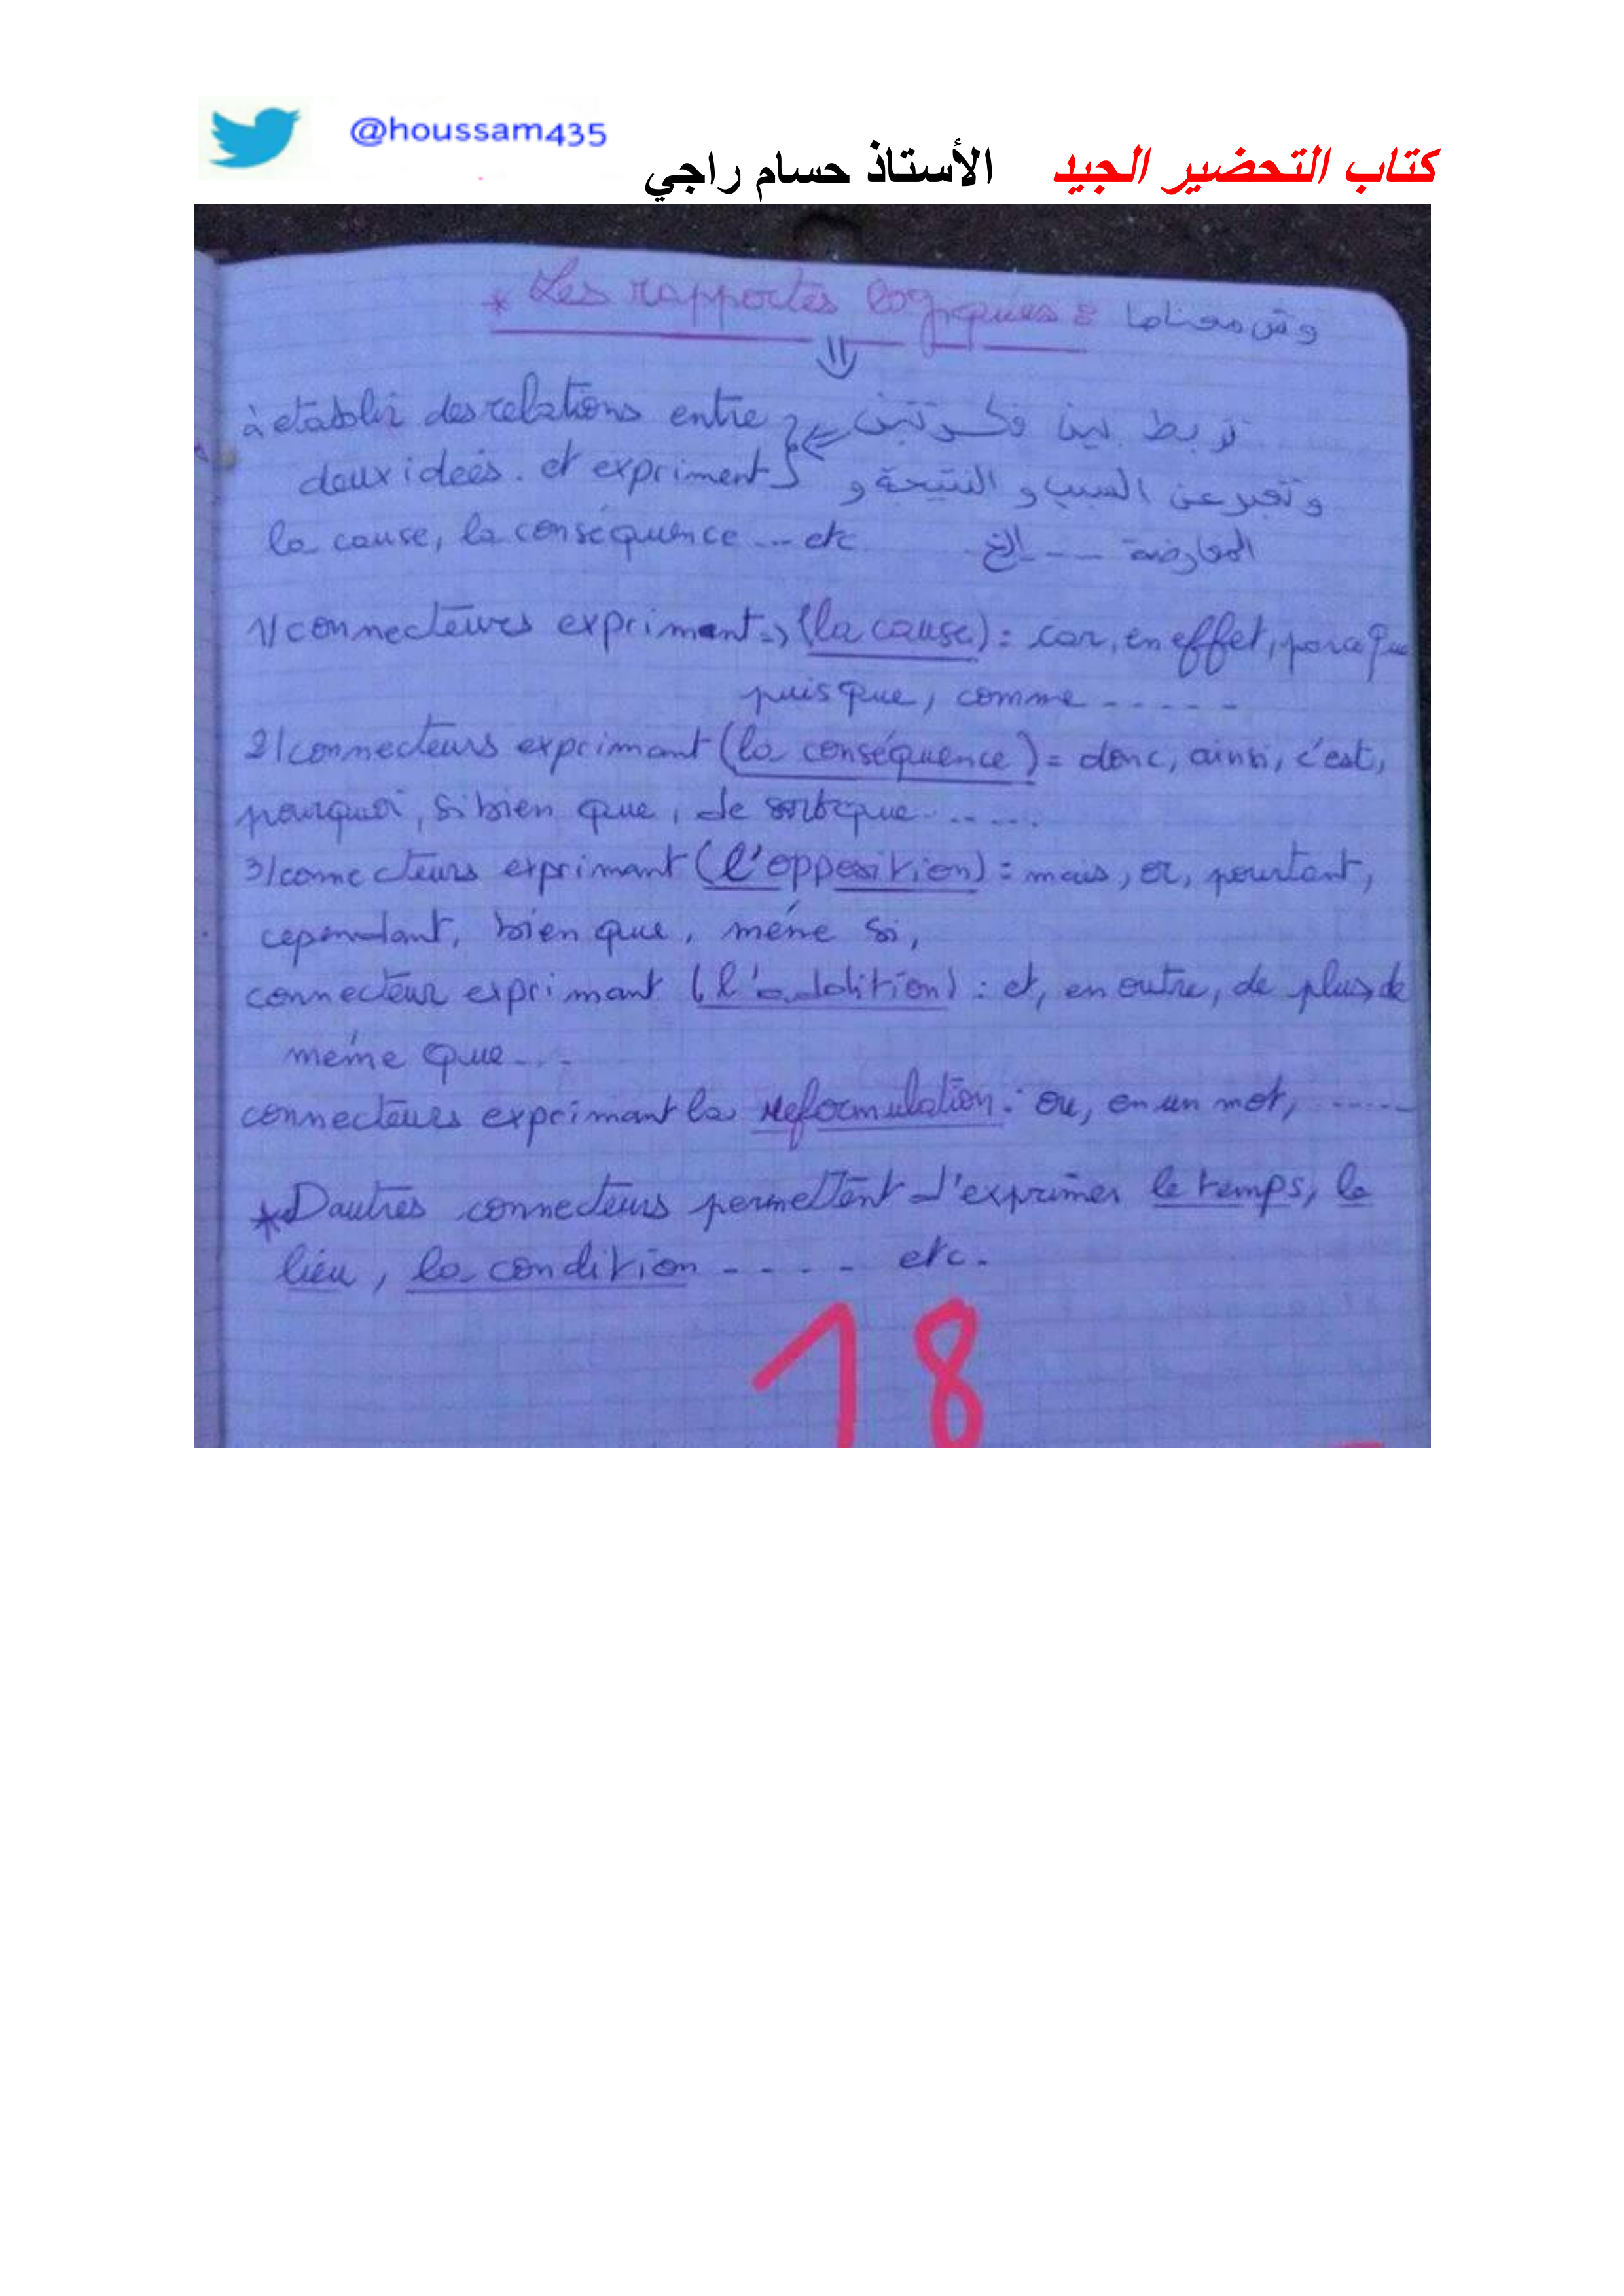 @houssam435
كتاب التحضير الجيد الأستاذ حسام راجي
* Les rapportes logiques : وش معناها
à etablir des relations entre تربط بين فكرتين
deux ideés. et expriment وتعبر عن السبب و النتيجة و
la cause, la conséquence ... etc المعارضة ... الخ
1/ connecteurs expriment => (la cause) : car, en effet, parce que
puis que, comme ......
2/ connecteurs exprimant (la conséquence) = donc, ainsi, c'est,
pourquoi, si bien que, de sorte que ......
3/ connecteurs exprimant (l'opposition) : mais, or, pourtant,
cependant, bien que, méme si,
connecteur exprimant (l'addition) : et, en outre, de plus, de
méme que ...
connecteurs exprimant la reformulation : ou, en un mot, ......
* D'autres connecteurs permettent d'exprimer le temps, le
lieu, la condition ..... etc.
18